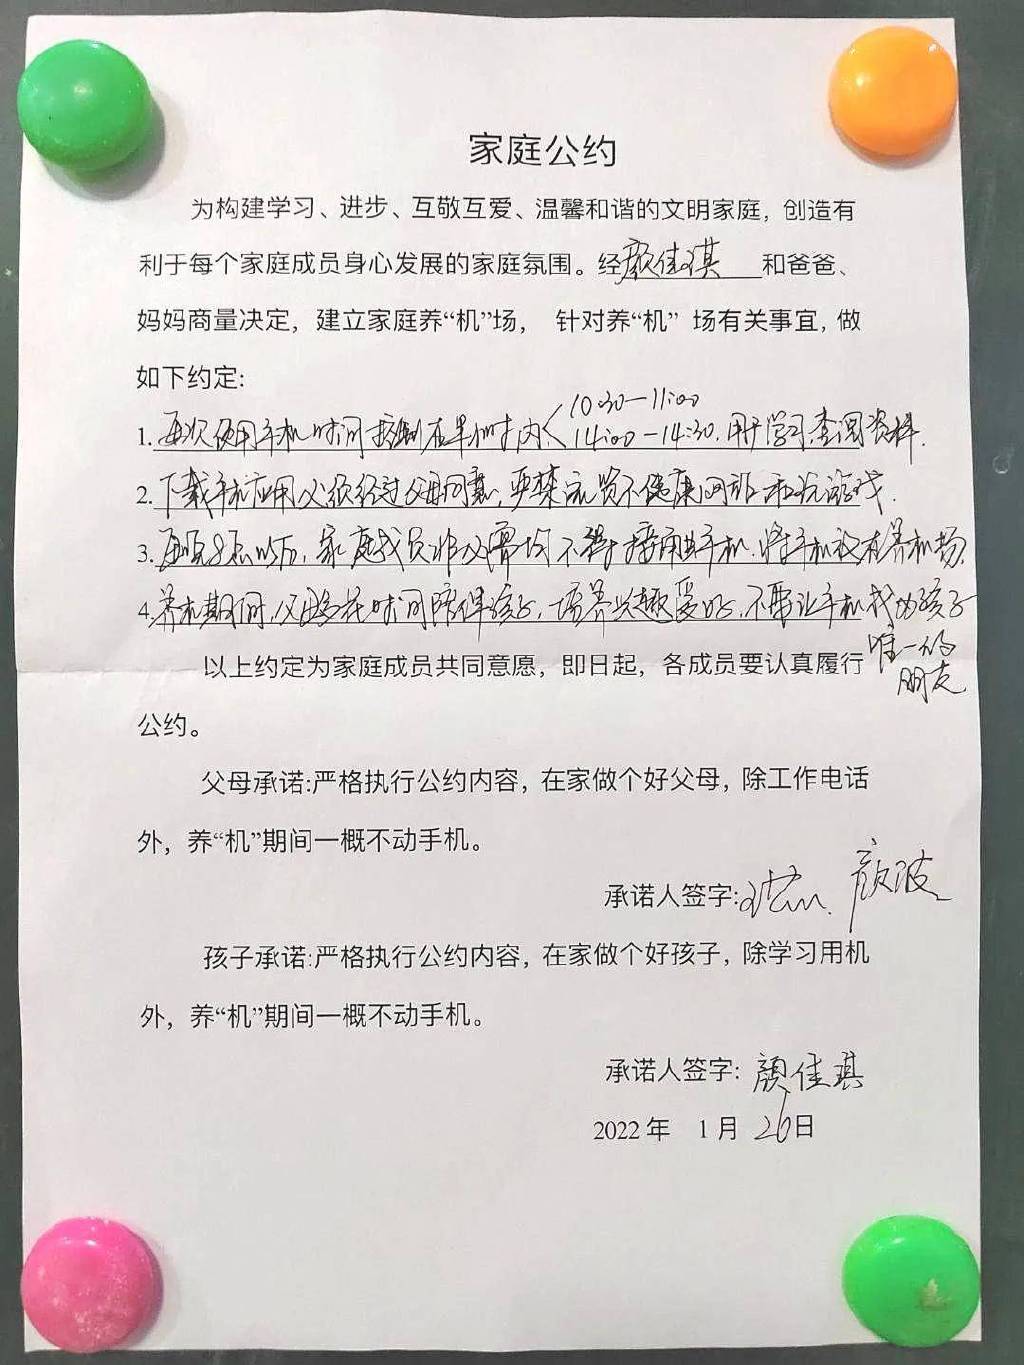 家庭公约
为构建学习、进步、互敬互爱、温馨和谐的文明家庭，创造有
利于每个家庭成员身心发展的家庭氛围。经颜佳琪 和爸爸、
妈妈商量决定，建立家庭养“机”场， 针对养“机” 场有关事宜，做
如下约定：
10:30—11:00
1. 每次使用手机时间控制在半小时内 14:00—14:30. 用于学习查阅资料.
2. 下载手机应用必须经过父母同意，严禁浏览不健康网站和玩游戏.
3. 每晚8点以后，家庭成员非必需均不得接触手机，将手机放在养机场.
4. 养机期间，父母多花时间陪伴孩子，培养兴趣爱好，不要让手机成为孩子
唯一的
朋友
以上约定为家庭成员共同意愿，即日起，各成员要认真履行
公约。
父母承诺:严格执行公约内容，在家做个好父母，除工作电话
外，养“机”期间一概不动手机。
承诺人签字: 颜波
孩子承诺:严格执行公约内容，在家做个好孩子，除学习用机
外，养“机”期间一概不动手机。
承诺人签字: 颜佳琪
2022 年 1 月 26日